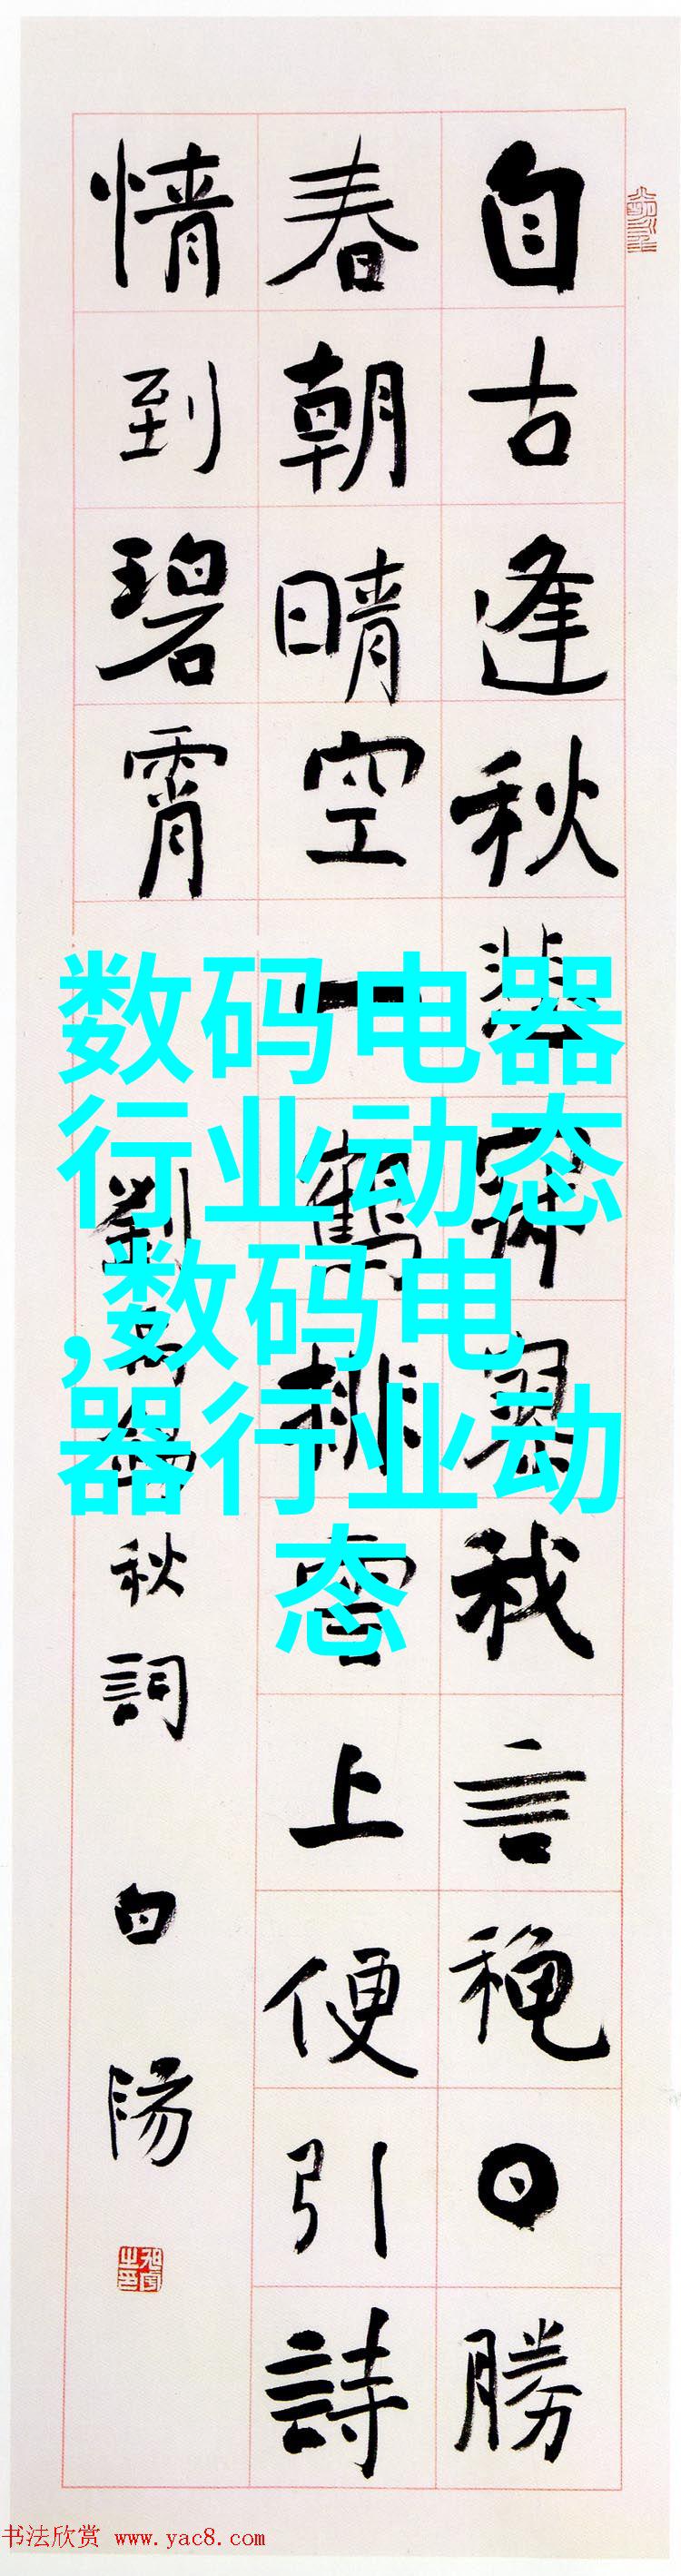 自古逢秋悲寂寥我言穐日勝
春朝晴空一鶴排雲上便引詩
情到碧霄
劉禹錫秋詞 白陽
数码电器
行业动态
,数码电
器行业动
态
书法欣赏 www.yac8.com